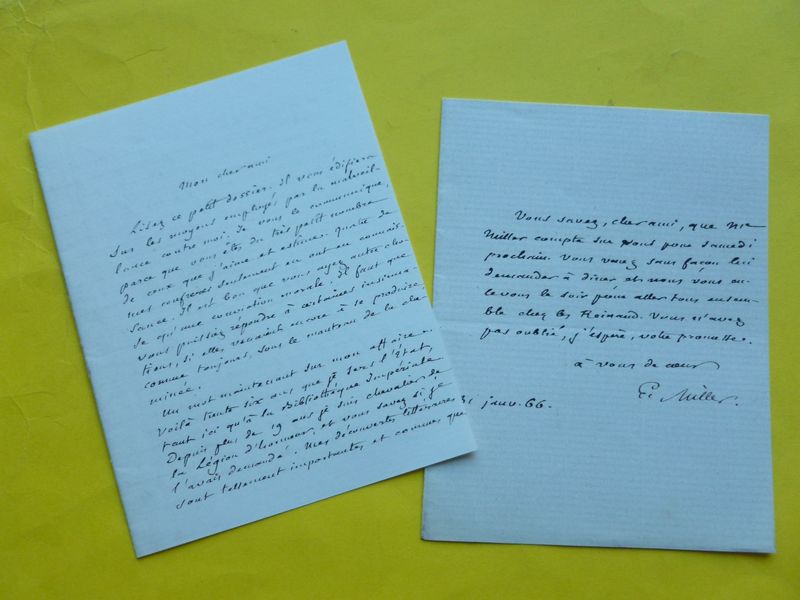 Mon cher ami
Lisez ce petit dossier. Il vous édifiera
sur les moyens employés par la malveil-
lance contre moi. Je vous le communique,
parce que vous êtes du très petit nombre
de ceux que j'aime et estime. Quatre de
mes confrères seulement en ont eu connais-
sance. Il est bon que vous ayez autre cho-
se qu'une conviction morale. Il faut que
vous puissiez répondre à certaines insinua-
tions, si elles venaient encore à se produire,
comme toujours, sous le manteau de la che-
minée.
Un mot maintenant sur mon affaire.
Voilà trente six ans que je sers l'État,
tant ici qu'à la Bibliothèque Impériale.
Depuis plus de 19 ans je suis chevalier de
la Légion d'honneur, et vous savez si je
l'avais demandé. Mes découvertes littéraires
sont tellement importantes et connues que
Vous savez, cher ami, que Me
Miller compte sur vous pour samedi
prochain. Vous venez sans façon lui
demander à dîner, et nous vous en-
levons le soir pour aller tous ensem-
ble chez les Reinaud. Vous n'avez
pas oublié, j'espère, votre promesse.
à vous de cœur
E. Miller.
31 janv. 66.